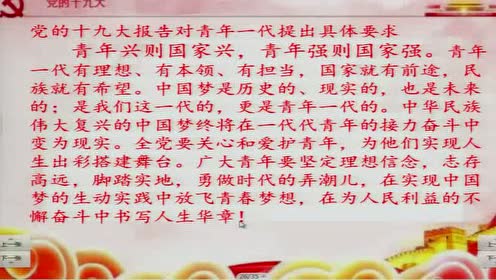 党的十九大
党的十九大报告对青年一代提出具体要求
青年兴则国家兴，青年强则国家强。青年
一代有理想、有本领、有担当，国家就有前途，民
族就有希望。中国梦是历史的、现实的，也是未来
的；是我们这一代的，更是青年一代的。中华民族
伟大复兴的中国梦终将在一代代青年的接力奋斗中
变为现实。全党要关心和爱护青年，为他们实现人
生出彩搭建舞台。广大青年要坚定理想信念，志存
高远，脚踏实地，勇做时代的弄潮儿，在实现中国
梦的生动实践中放飞青春梦想，在为人民利益的不
懈奋斗中书写人生华章！
上一张
下一张
26/35